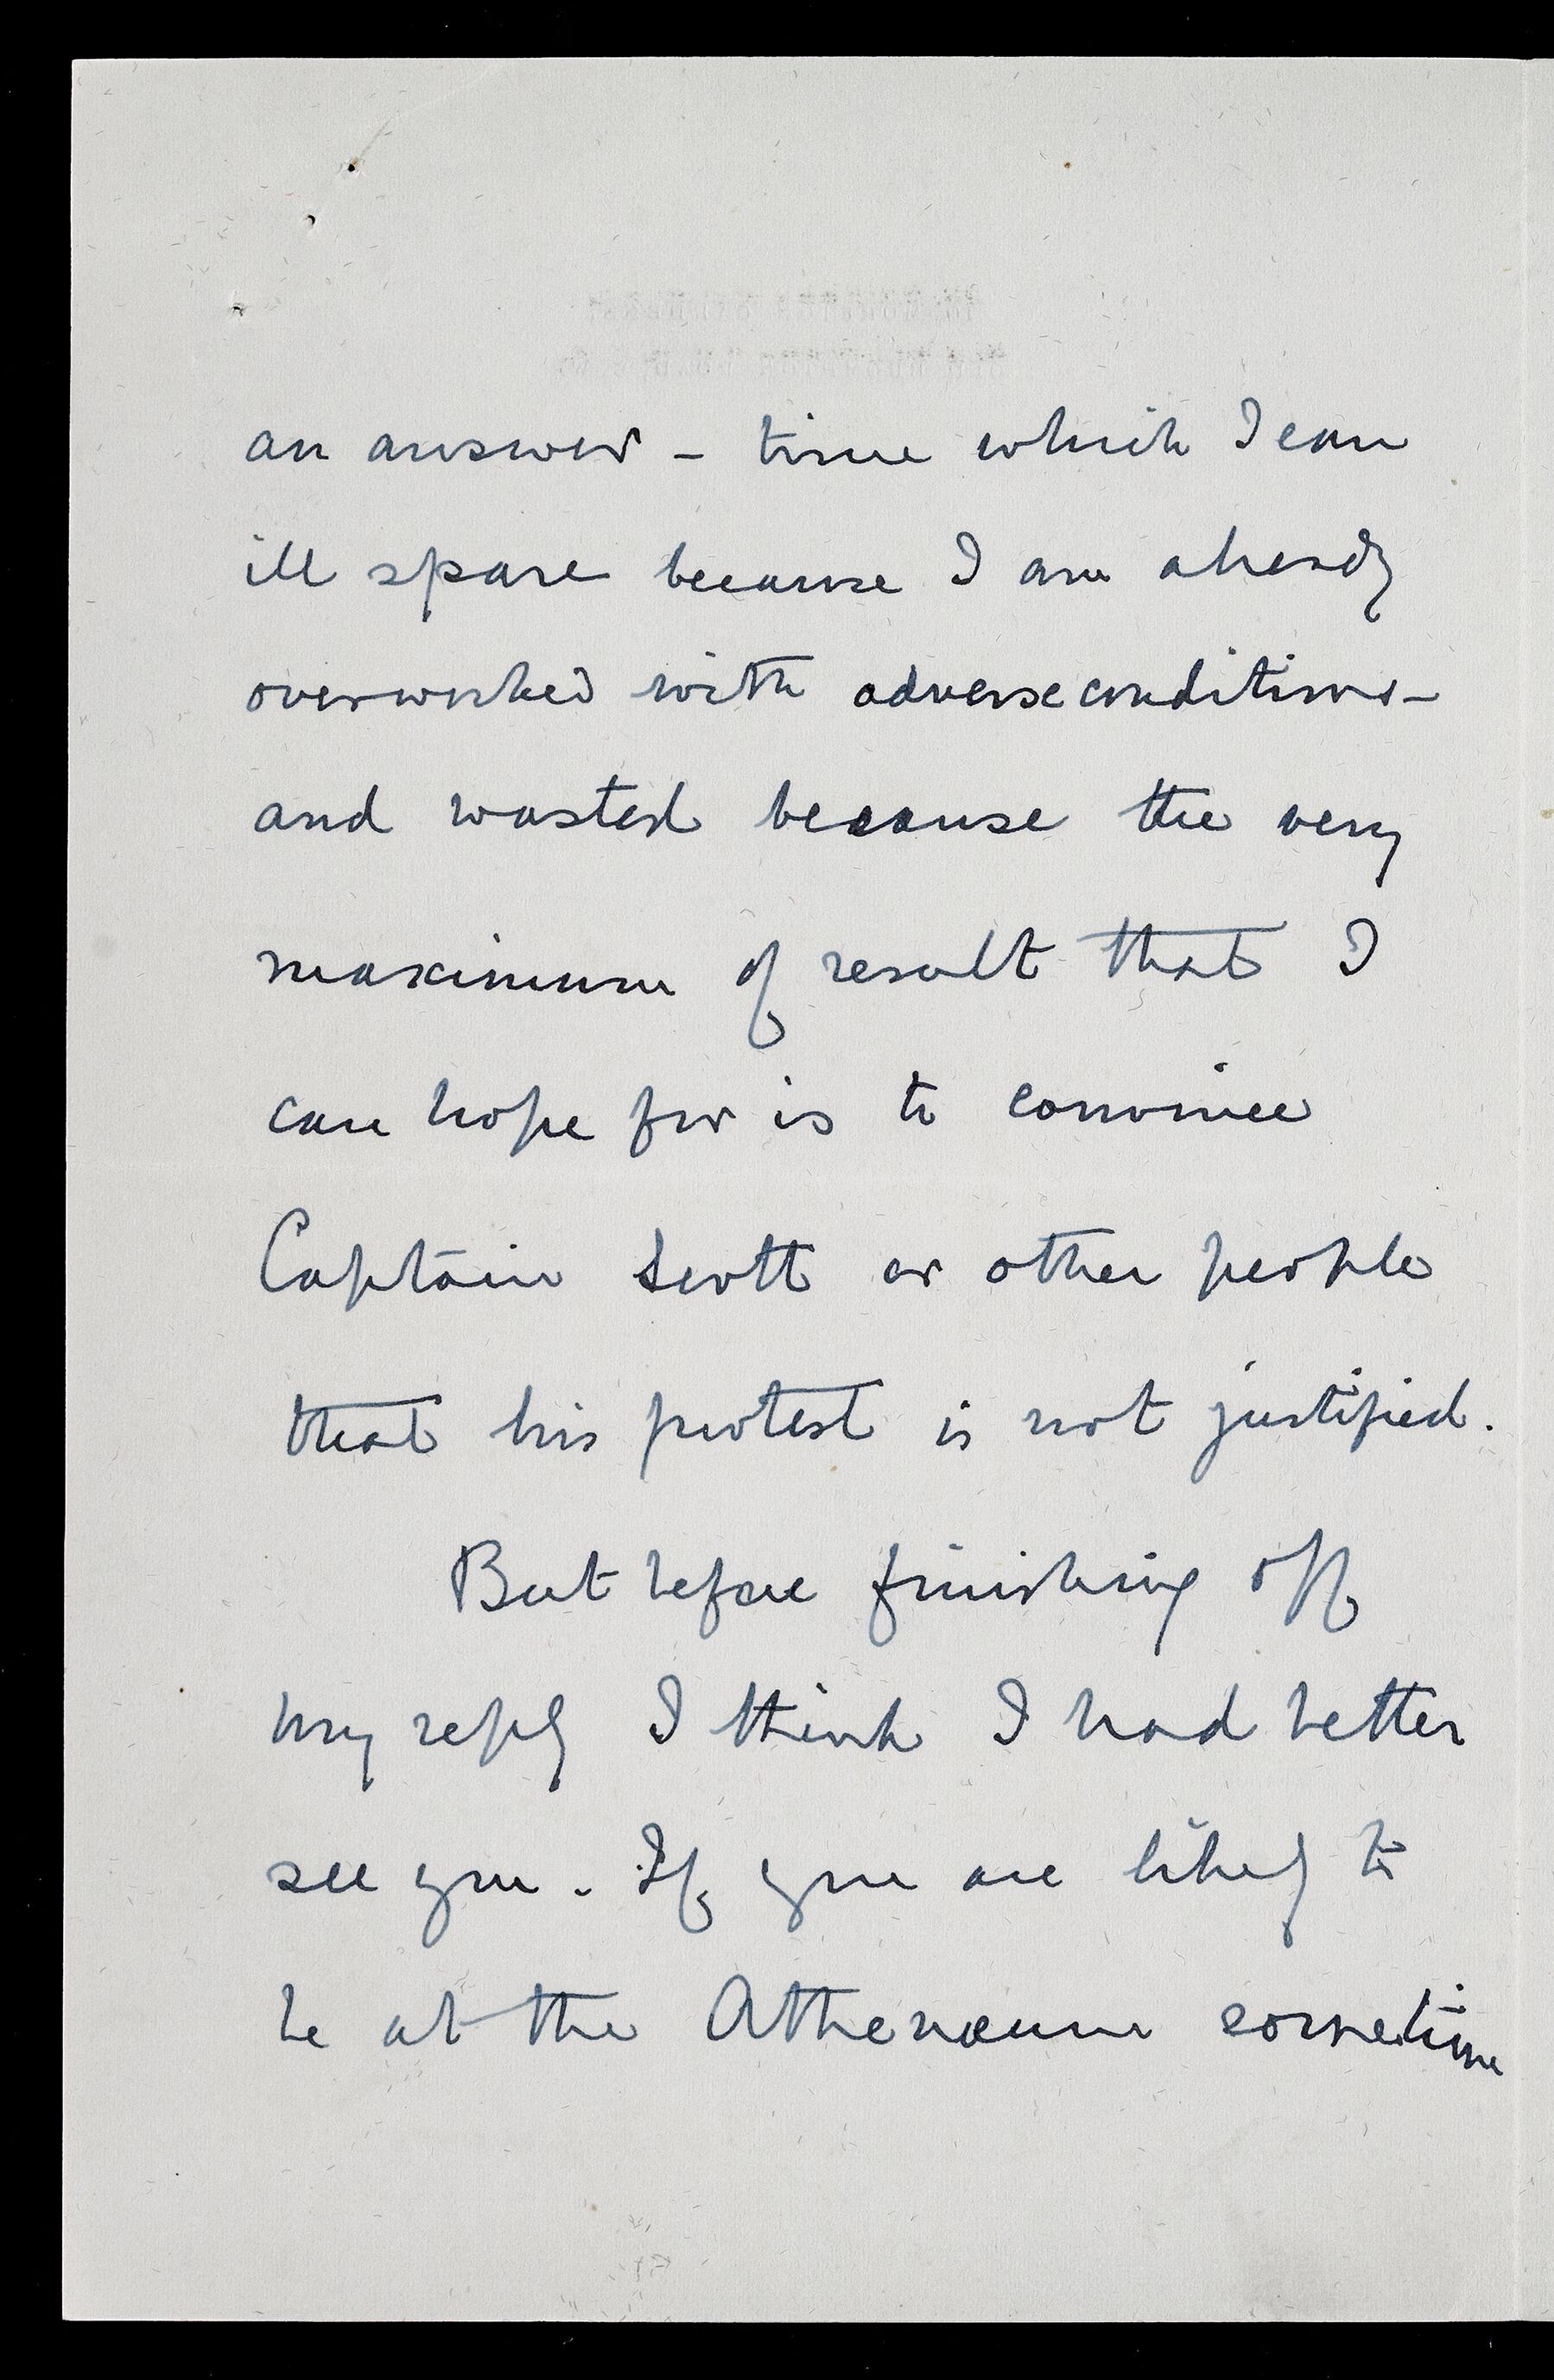 an answer – time which I can
ill spare because I am already
overworked with adverse conditions –
and wasted because the very
maximum of result that I
can hope for is to convince
Captain Scott or other people
that his protest is not justified.
But before finishing off
my reply I think I had better
see you. If you are likely to
be at the Athenæum sometime